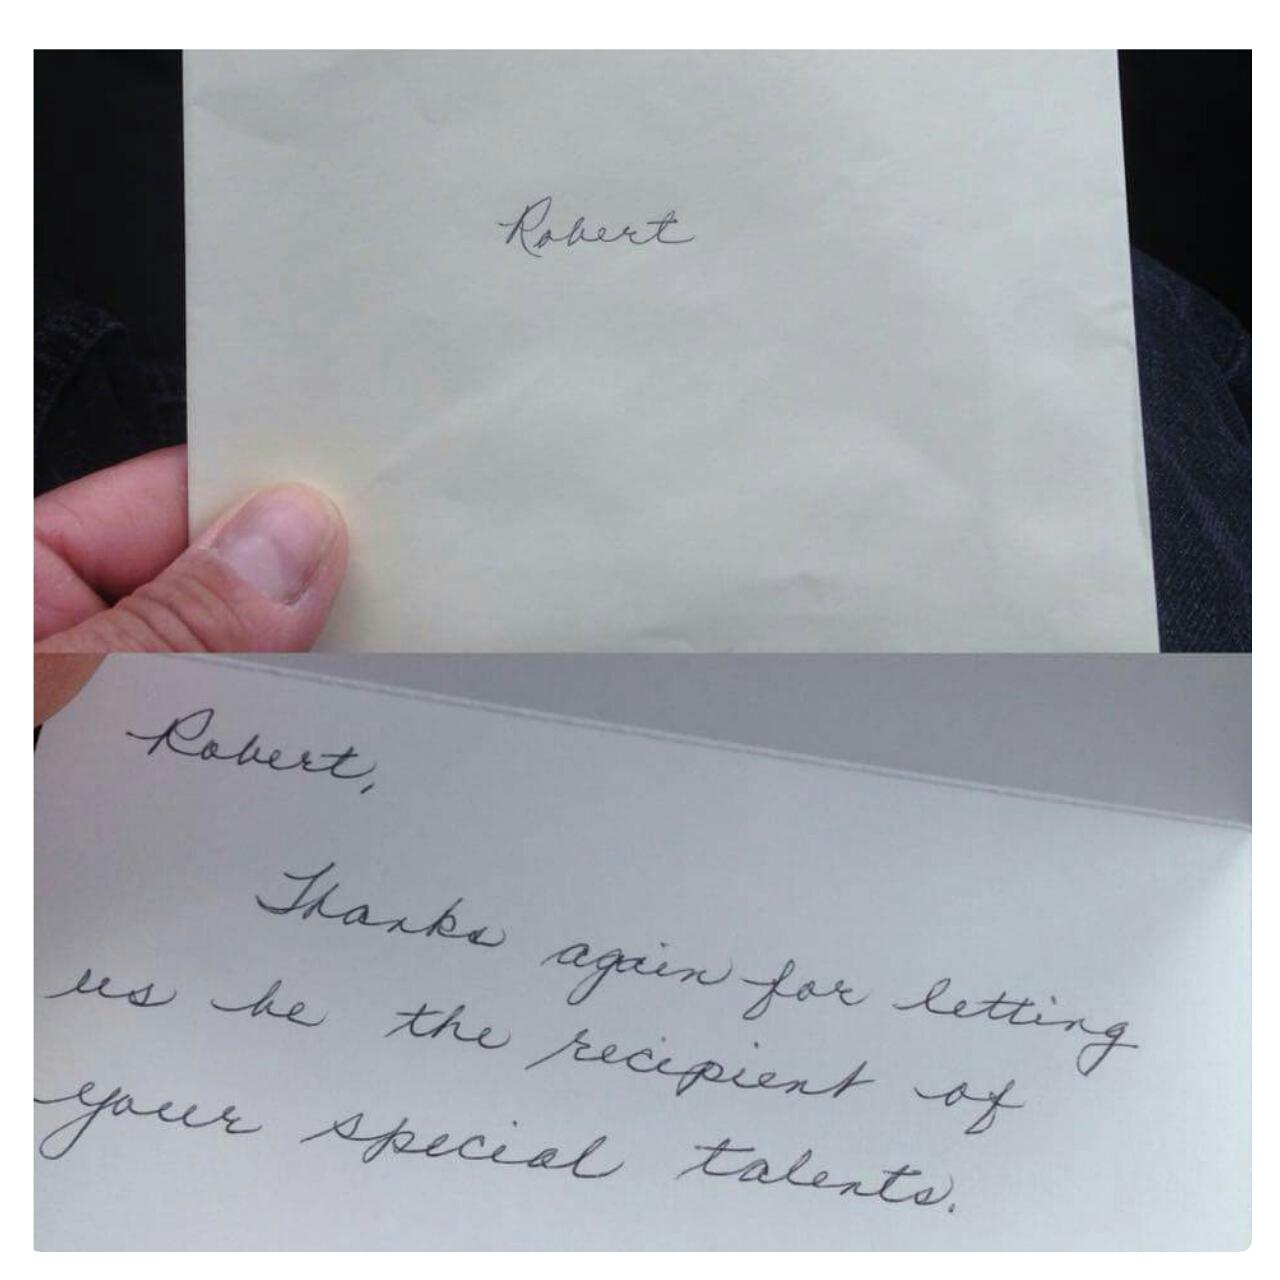 Robert
Robert,
Thanks again for letting
us be the recipient of
your special talents.